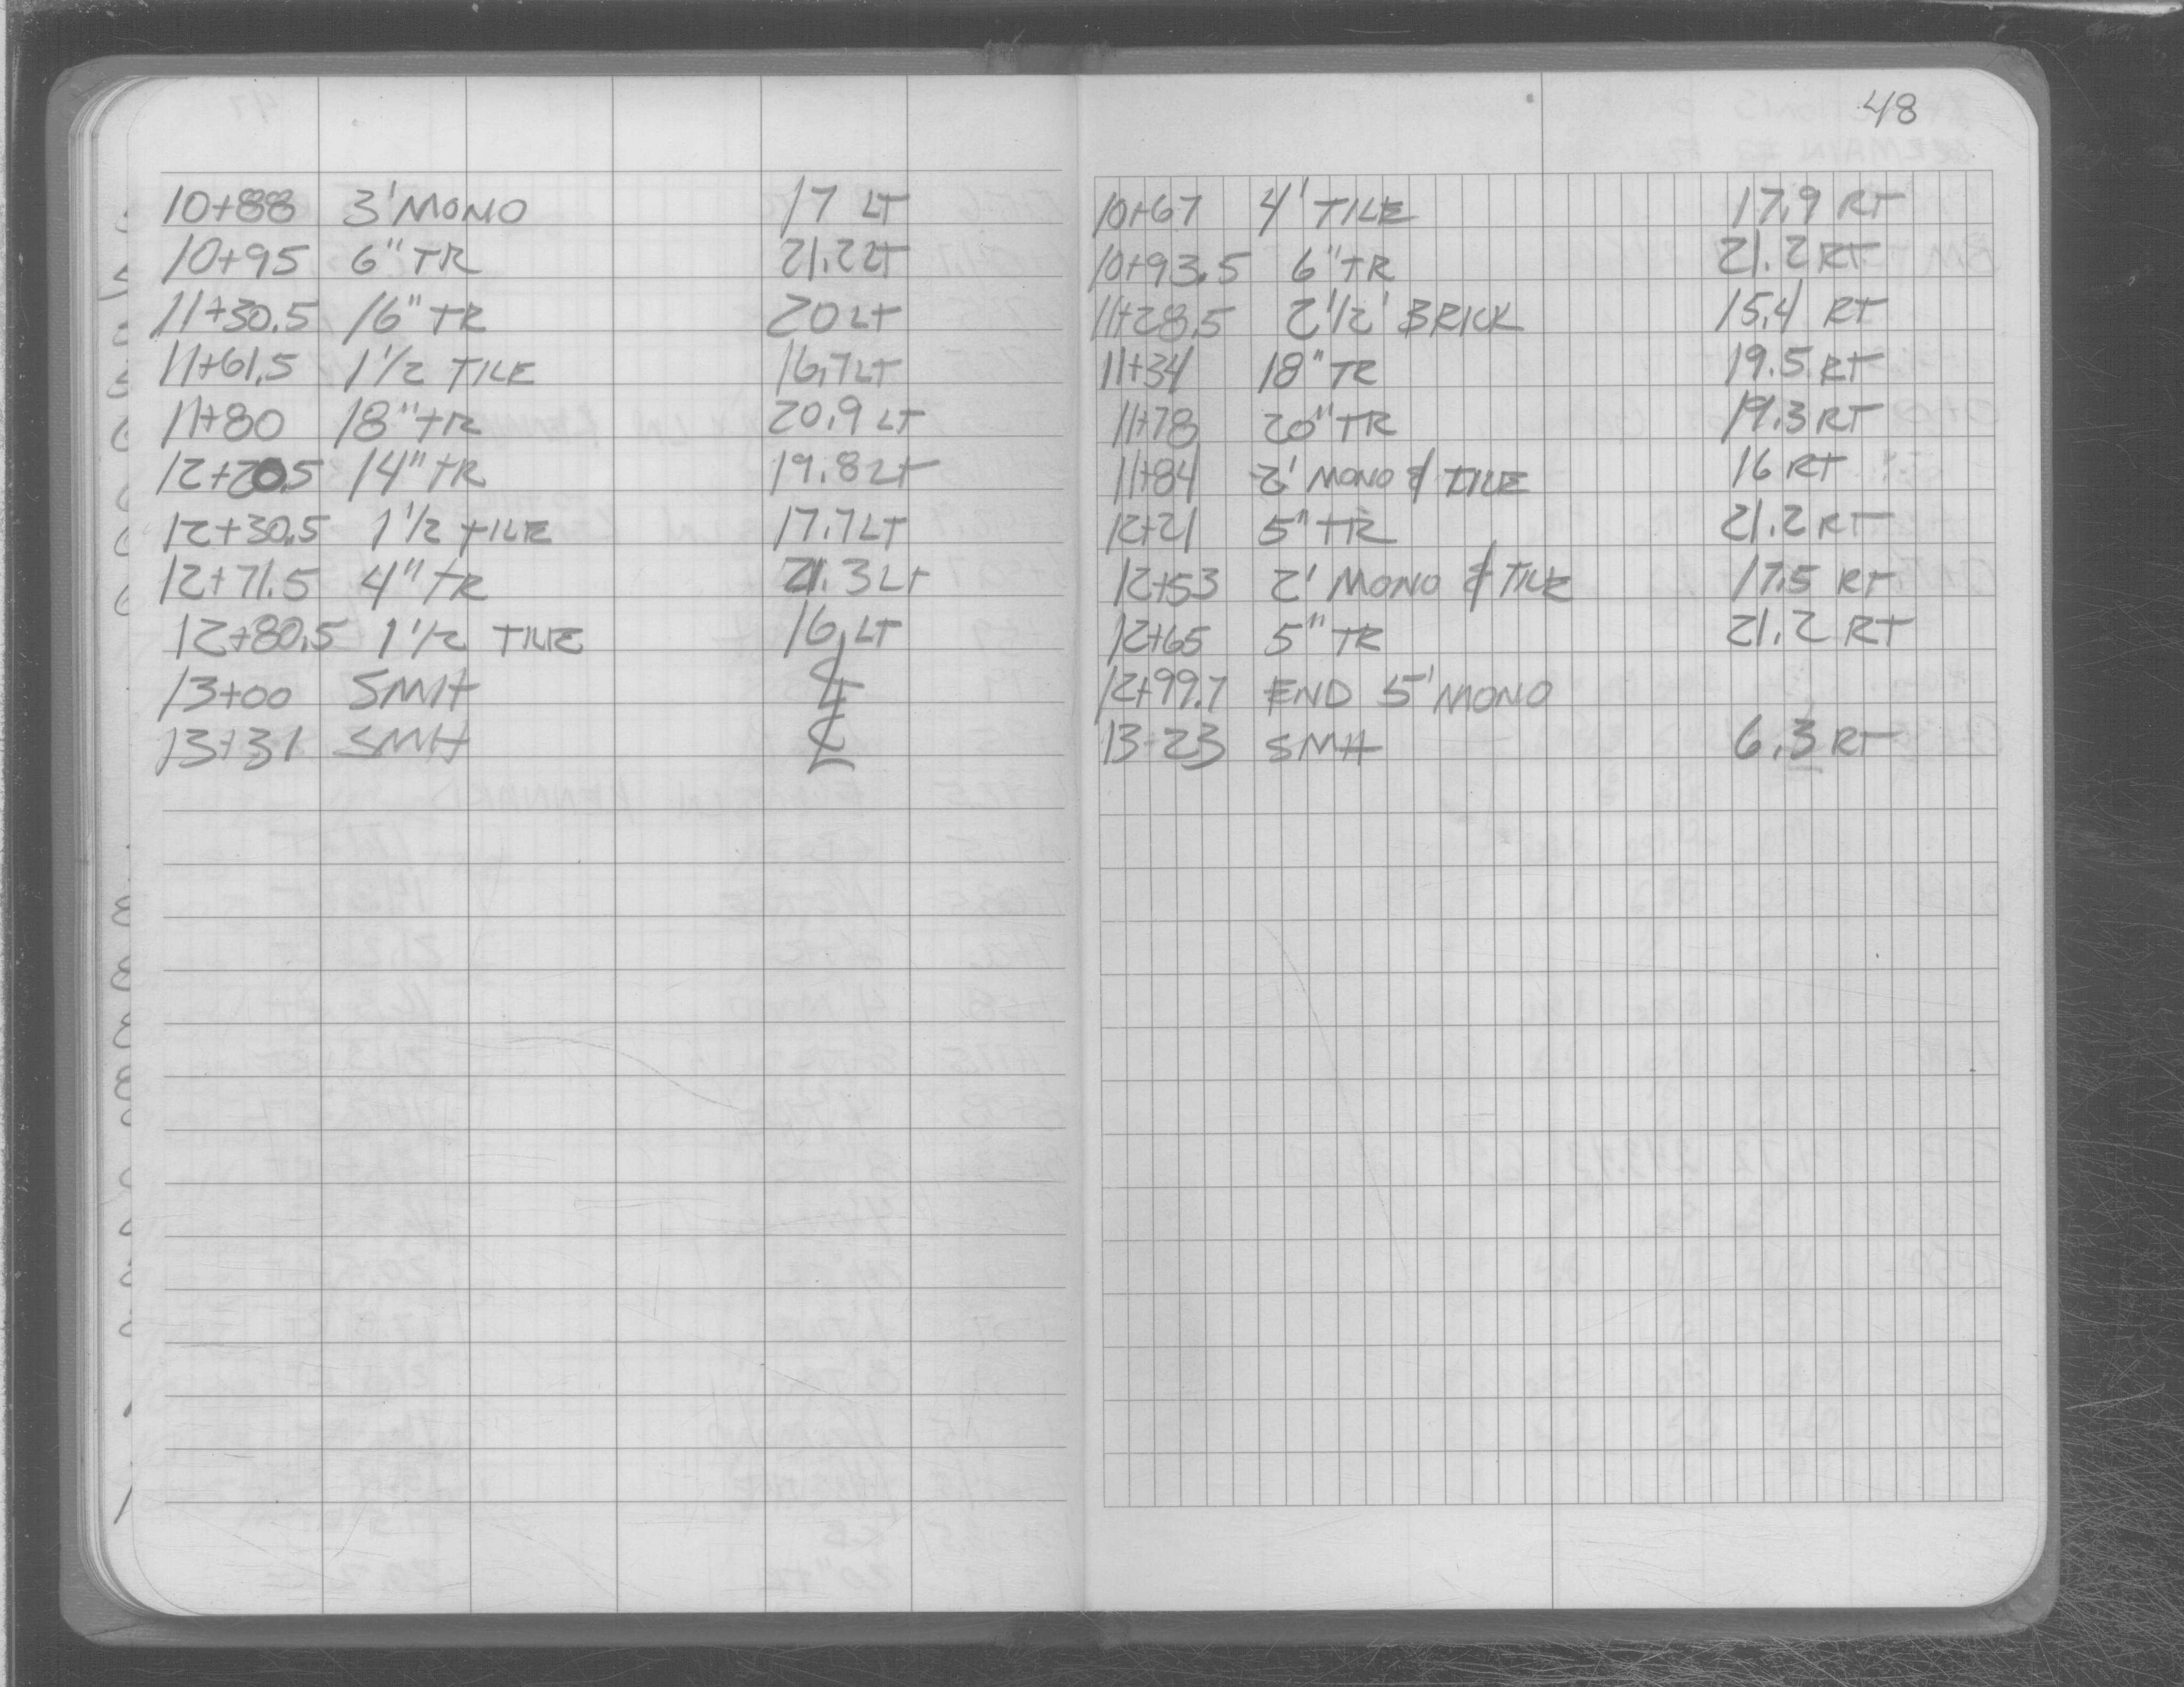 48
10+88 3' MONO 17 LT
10+95 6" TR 21.2 LT
11+30.5 16" TR 20 LT
11+61.5 1 1/2 TILE 16.7 LT
11+80 18" TR 20.9 LT
12+20.5 14" TR 19.8 LT
12+30.5 1 1/2 TILE 17.7 LT
12+71.5 4" TR 21.3 LT
12+80.5 1 1/2 TILE 16 LT
13+00 SMH ℄
13+31 SMH ℄
10+67 4' TILE 17.9 RT
10+93.5 6" TR 21.2 RT
11+28.5 2 1/2' BRICK 15.4 RT
11+34 18" TR 19.5 RT
11+78 20" TR 19.3 RT
11+84 2' MONO & TILE 16 RT
12+21 5" TR 21.2 RT
12+53 2' MONO & TILE 17.5 RT
12+65 5" TR 21.2 RT
12+99.7 END 5' MONO
13+23 SMH 6.3 RT